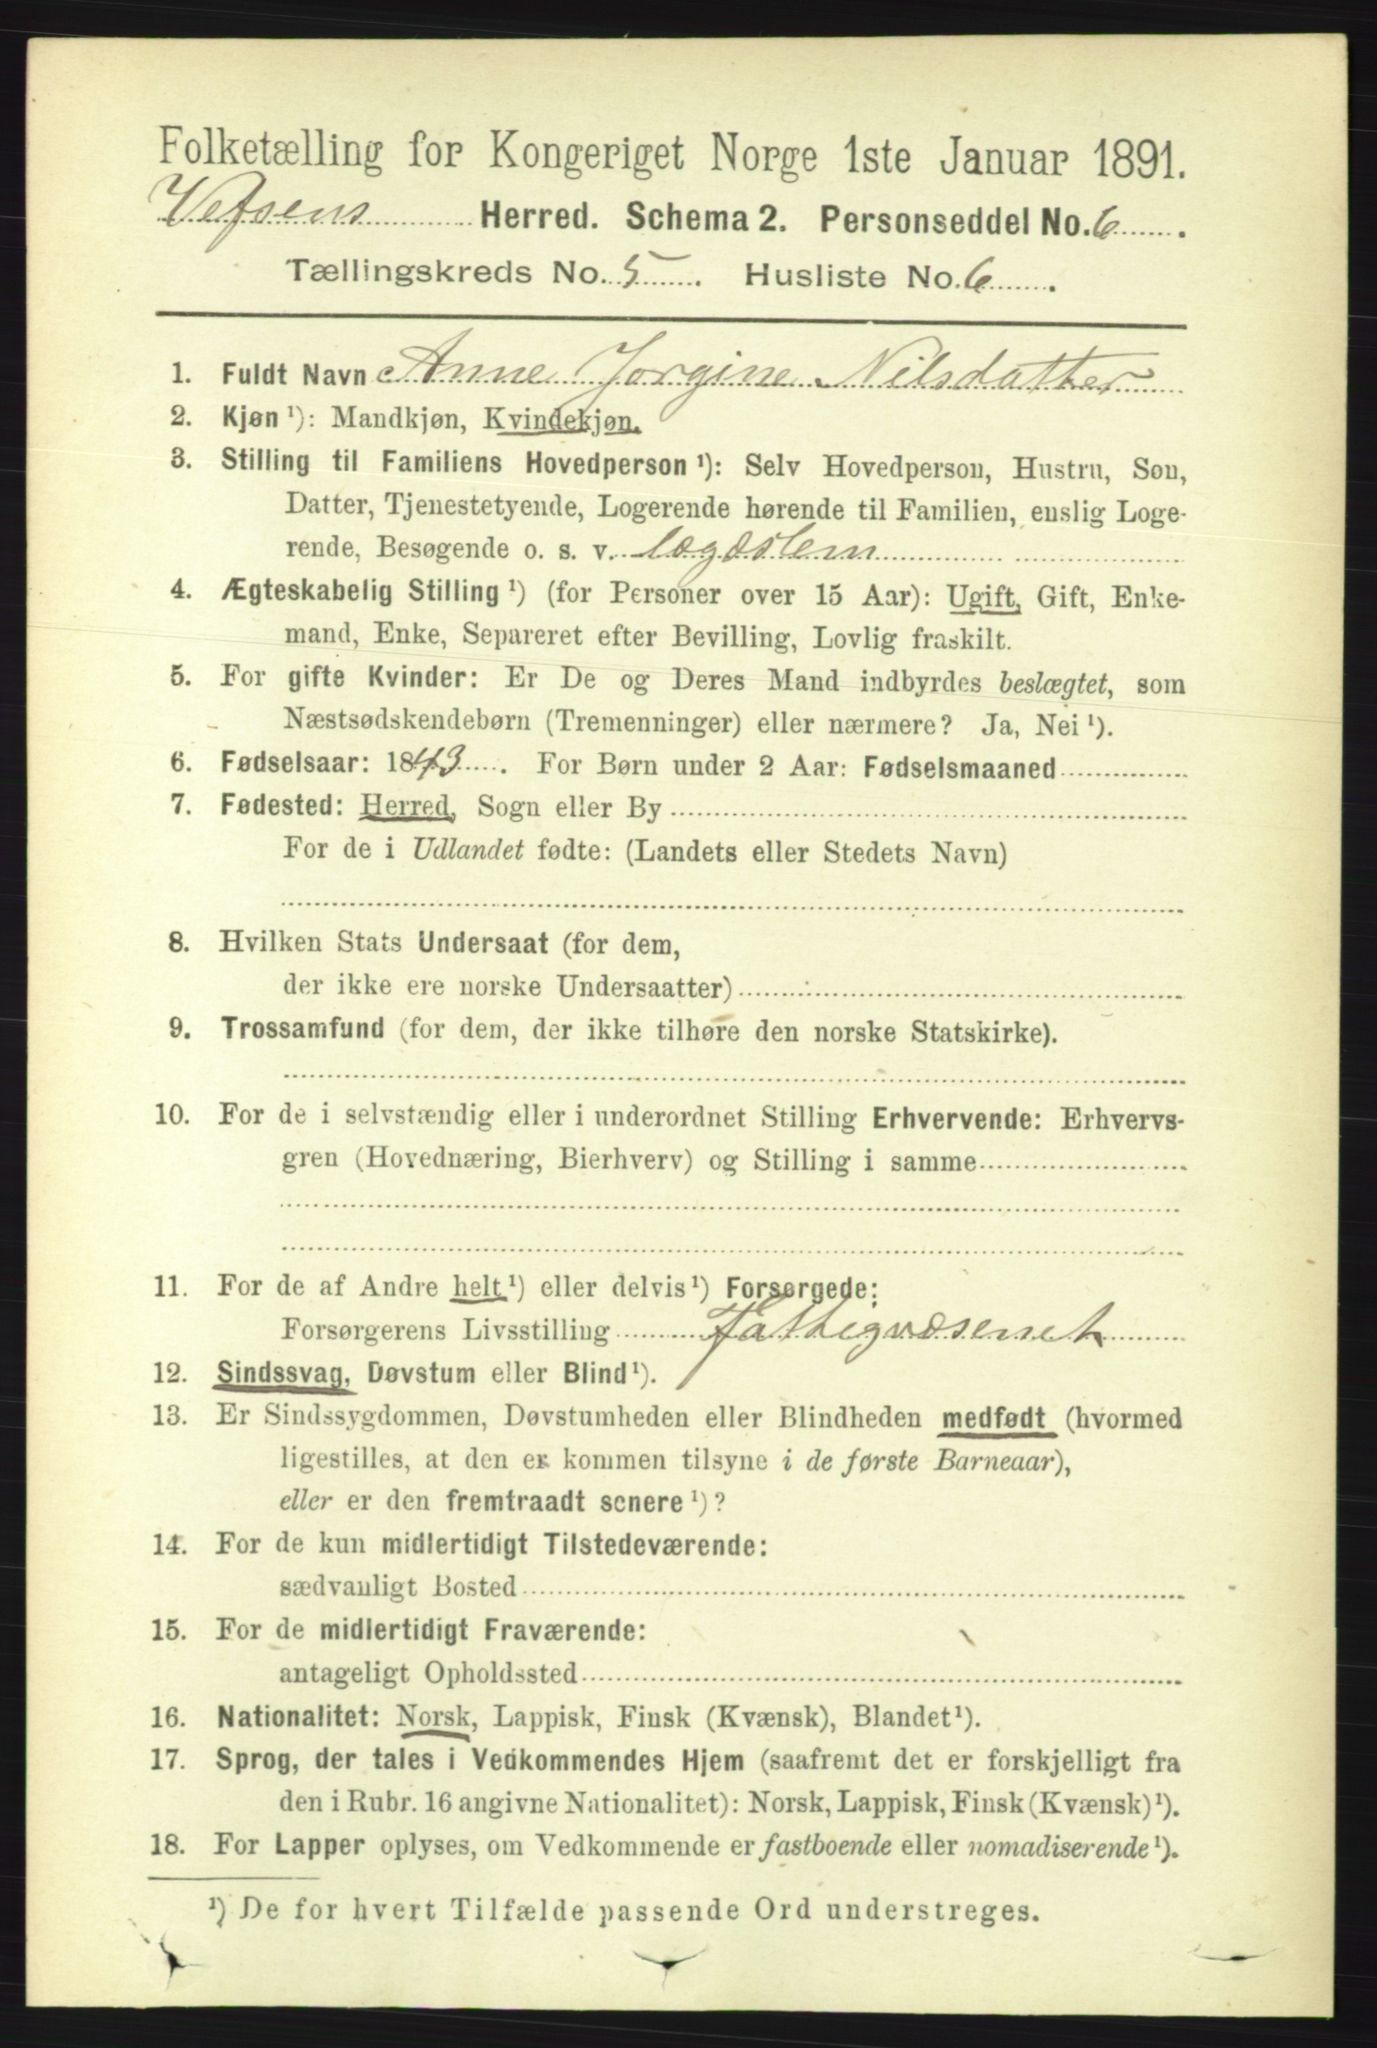 Folketælling for Kongeriget Norge 1ste Januar 1891.
Vefsens Herred. Schema 2. Personseddel No. 6.
Tællingskreds No. 5. Husliste No. 6.
1. Fuldt Navn Anne Jorgine Nilsdatter
2. Kjøn ¹): Mandkjøn, Kvindekjøn.
3. Stilling til Familiens Hovedperson ¹): Selv Hovedperson, Hustru, Søn,
Datter, Tjenestetyende, Logerende hørende til Familien, enslig Loge-
rende, Besøgende o. s. v. lægdslem
4. Ægteskabelig Stilling ¹) (for Personer over 15 Aar): Ugift, Gift, Enke-
mand, Enke, Separeret efter Bevilling, Lovlig fraskilt.
5. For gifte Kvinder: Er De og Deres Mand indbyrdes beslægtet, som
Næstsødskendebørn (Tremenninger) eller nærmere? Ja, Nei ¹).
6. Fødselsaar: 1843. For Børn under 2 Aar: Fødselsmaaned
7. Fødested: Herred, Sogn eller By
For de i Udlandet fødte: (Landets eller Stedets Navn)
8. Hvilken Stats Undersaat (for dem,
der ikke ere norske Undersaatter)
9. Trossamfund (for dem, der ikke tilhøre den norske Statskirke).
10. For de i selvstændig eller i underordnet Stilling Erhvervende: Erhvervs-
gren (Hovednæring, Bierhverv) og Stilling i samme
11. For de af Andre helt ¹) eller delvis ¹) Forsørgede:
Forsørgerens Livsstilling Fattigvæsenet
12. Sindssvag, Døvstum eller Blind ¹).
13. Er Sindssygdommen, Døvstumheden eller Blindheden medfødt (hvormed
ligestilles, at den er kommen tilsyne i de første Barneaar),
eller er den fremtraadt senere ¹)?
14. For de kun midlertidigt Tilstedeværende:
sædvanligt Bosted
15. For de midlertidigt Fraværende:
antageligt Opholdssted
16. Nationalitet: Norsk, Lappisk, Finsk (Kvænsk), Blandet ¹).
17. Sprog, der tales i Vedkommendes Hjem (saafremt det er forskjelligt fra
den i Rubr. 16 angivne Nationalitet): Norsk, Lappisk, Finsk (Kvænsk) ¹).
18. For Lapper oplyses, om Vedkommende er fastboende eller nomadiserende ¹).
¹) De for hvert Tilfælde passende Ord understreges.